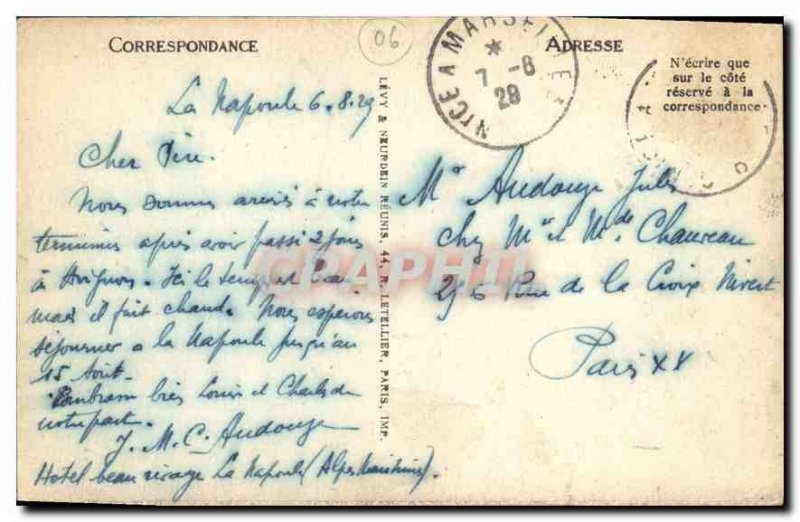 CORRESPONDANCE
06
ADRESSE
N'écrire que
sur le côté
réservé à la
correspondance
NICE A MARSEILLE
7 -8
29
La Napoule 6.8.29
Cher Père.
Nous sommes arrivés à notre
terminus après avoir passé 2 jours
à Avignon. Ici le temps est beau
mais il fait chaud. Nous espérons
séjourner à la Napoule jusqu'au
15 Août.
Embrasse bien Louis et Charles de
notre part.
J. M. C. Audouze
Hotel beau rivage La Napoule (Alpes Maritimes).
LÉVY & NEURDEIN RÉUNIS, 44, R. LETELLIER, PARIS, IMP.
Mr Audouze Jules
chez Mr et Mde Chauveau
Rue de la Croix Nivert
Paris XV
CPAPHIL